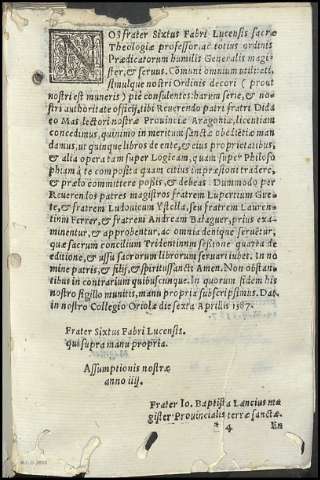 NOS frater Sixtus Fabri Lucensis sacræ
Theologiæ professor, ac totius ordinis
Prædicatorum humilis Generalis magi-
ster, & seruus. Cōmuni omnium utilitati,
simulque nostri Ordinis decori (prout
nostri est muneris) piè consulentes: harum serie, & no-
stri authoritate officij, tibi Reuerendo patri fratri Dida
co Mas lectori nostræ Prouinciæ Aragoniæ, licentiam
concedimus, quinimo in meritum sanctæ obedietiæ man
damus, ut quinque libros de ente, & eius proprietatibus,
& alia opera tam super Logicam, quàm super Philoso
phiam à te composita quam citius impressioni tradere,
& prælo committere possis, & debeas. Dummodo per
Reuerendos patres magistros fratrem Lupertium Gre-
te, & fratrem Ludouicum Ystella, seu fratrem Lauren-
tium Ferrer, & fratrem Andream Balaguer, prius exa-
minentur, & approbentur, ac omnia denique seruētur,
quæ sacrum concilium Tridentinum sessione quarta de
editione, & usu sacrorum librorum seruari iubet. In no
mine patris, & filij, & spiritussancti Amen. Non obstan-
tibus in contrarium quibuscunque. In quorum fidem his
nostro sigillo munitis, manu propria subscripsimus. Dat.
in nostro Collegio Oriolæ die sexta Aprilis 1587.
Frater Sixtus Fabri Lucensis.
qui supra manu propria.
Assumptionis nostræ
anno iiij.
Frater Io. Baptista Lancius ma
gister Prouincialis terræ sanctæ.
4 En